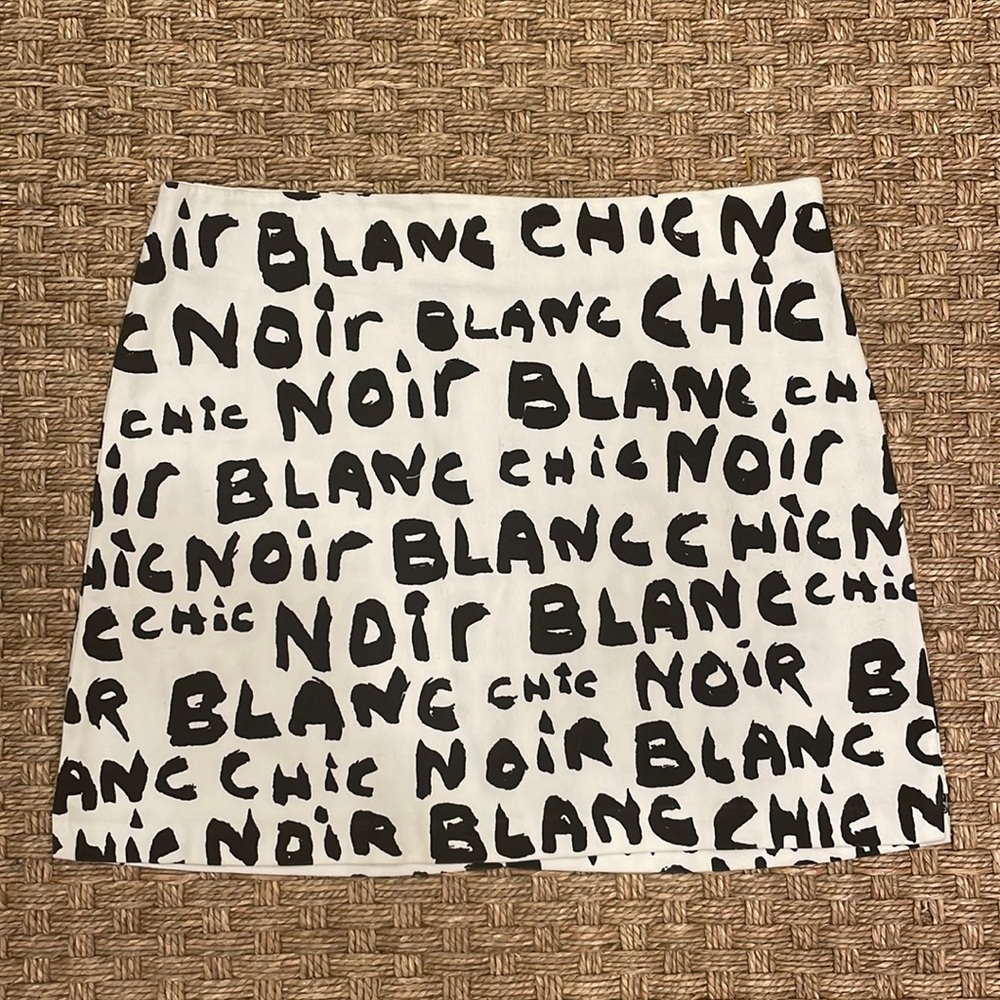 oir BLANC CHIC NO
C NOir BLANC CHiC
CHiC NOir BLANC CH
ir BLANC CHiC NOir
HiC NOir BLANC CHiC N
C CHiC NOir BLANC CHiC
iR BLANC CHiC NOiR BL
ANC CHiC NOiR BLANC C
HiC NOiR BLANC CHiC N